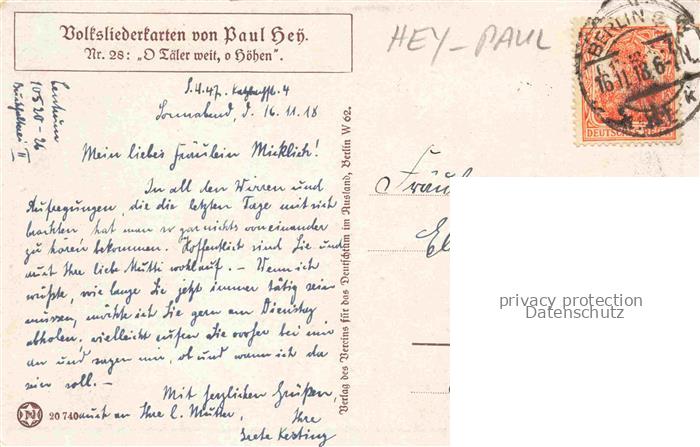 Volksliederkarten von Paul Hey.
Nr. 28: „O Täler weit, o Höhen“.
HEY-PAUL
BERLIN
16.11.18.6-7N.
DEUTSCHES REICH
Centrum
10520-26
II
Sonnabend, d. 16.11.18
Mein liebes Fräulein Micklich!
In all den Wirren und
Aufregungen, die die letzten Tage mit sich
brachten hat man so gar nichts voneinander
zu hören bekommen. Hoffentlich sind Sie und
auch Ihre liebe Mutti wohlauf. – Wenn ich
wüßte, wie lange Sie jetzt immer tätig sein
müssen, möchte ich Sie gern am Dienstag
abholen. vielleicht rufen Sie vorher bei mir
an und sagen mir, ob und wann ich da
sein soll. –
Mit herzlichen Grüßen,
auch an Ihre l. Mutter,
Ihre
Kesting
20 740
Verlag des Vereins für das Deutschtum im Ausland, Berlin W 62.
Fräul
El
privacy protection
Datenschutz